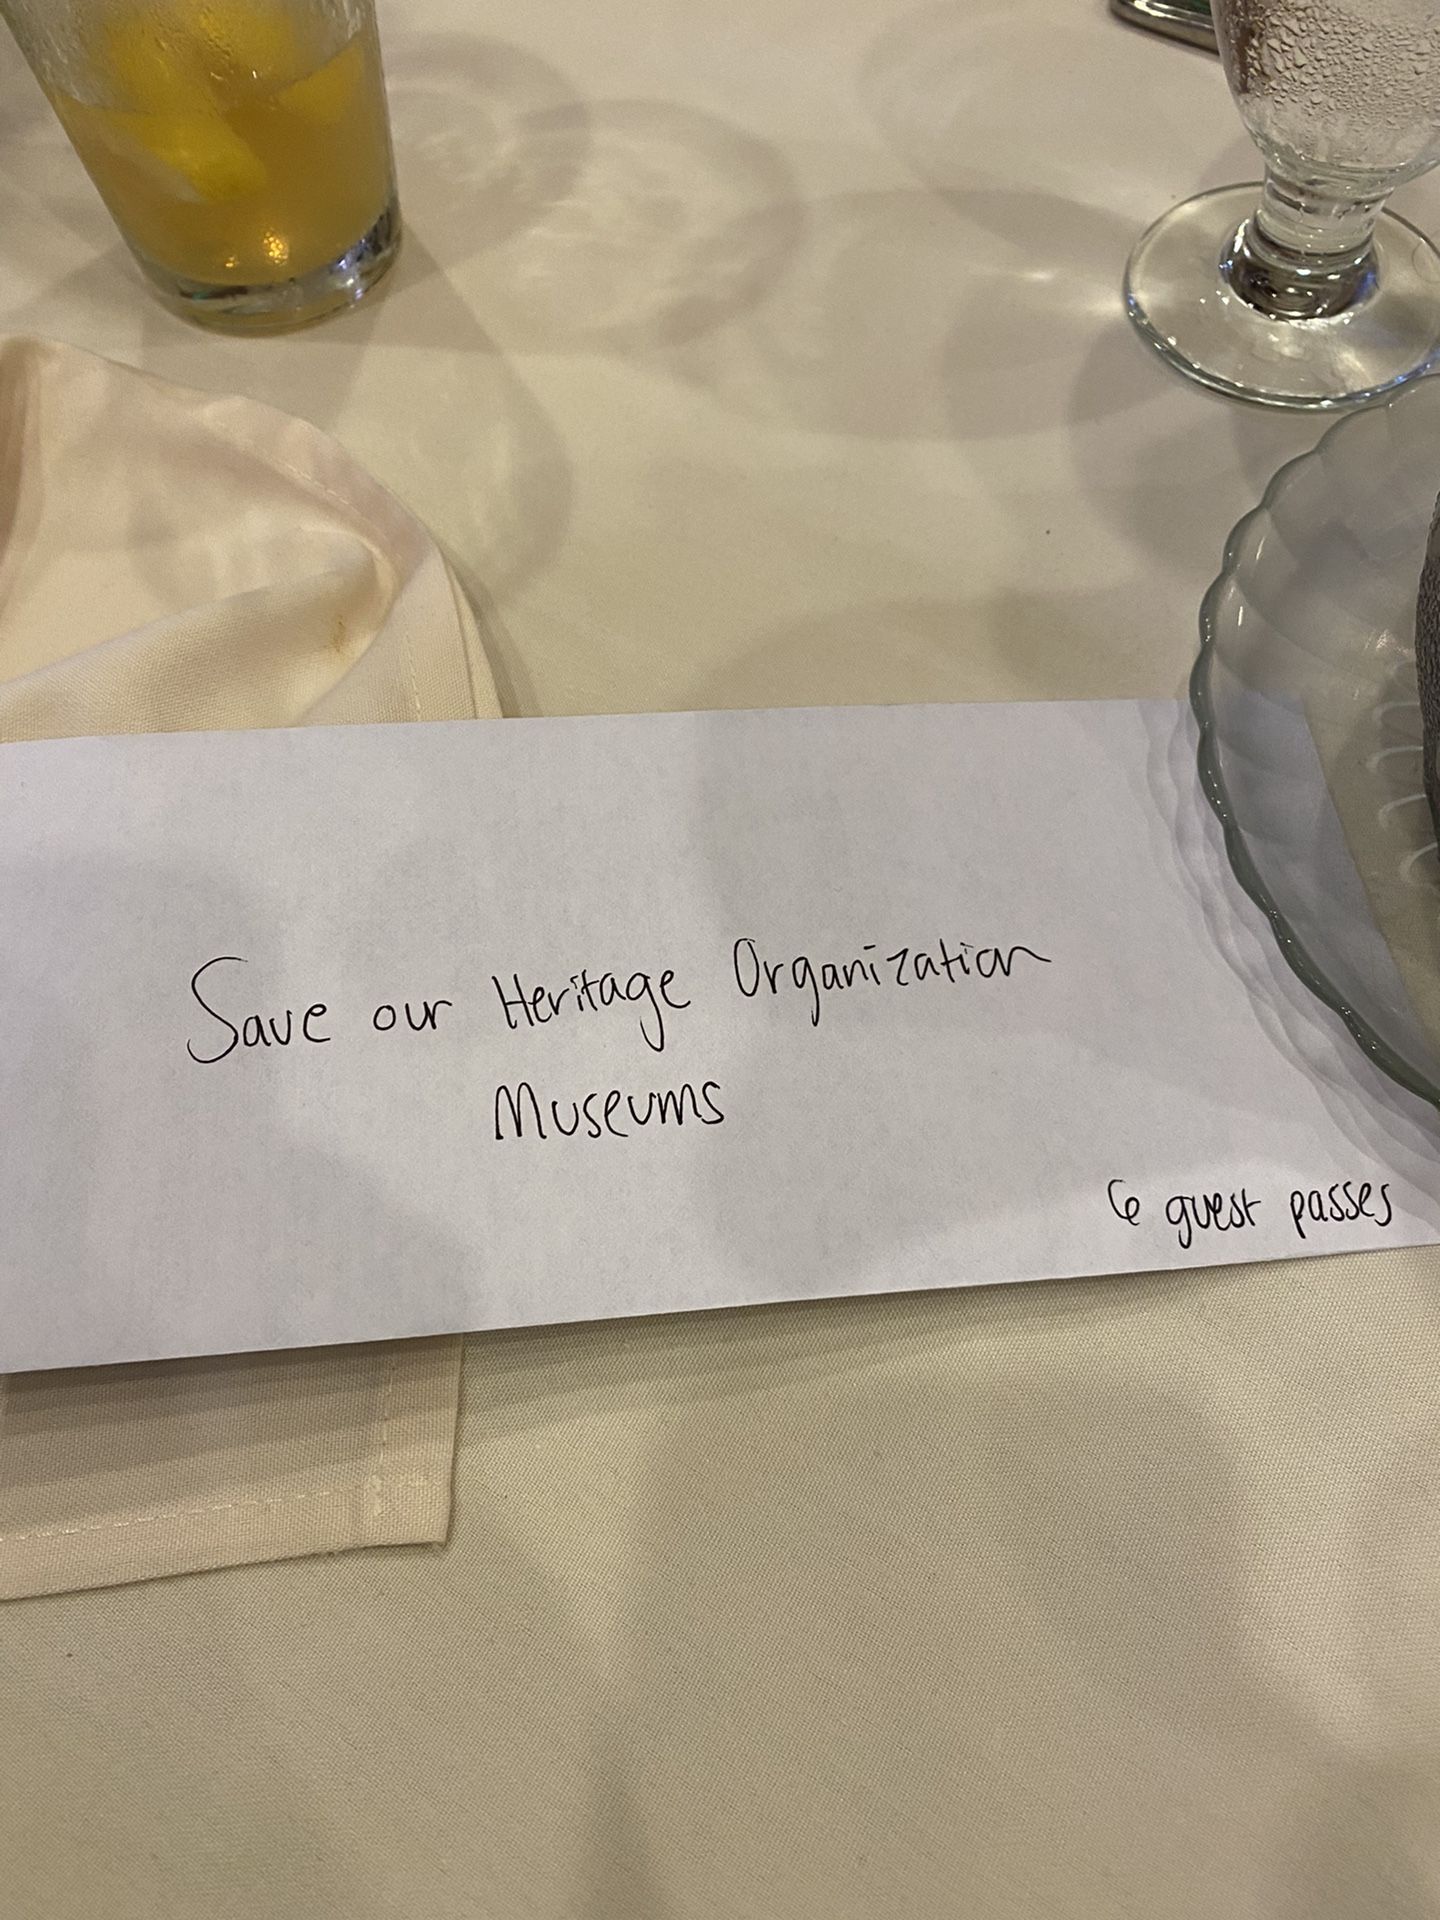 Save our Heritage Organization
Museums
6 guest passes